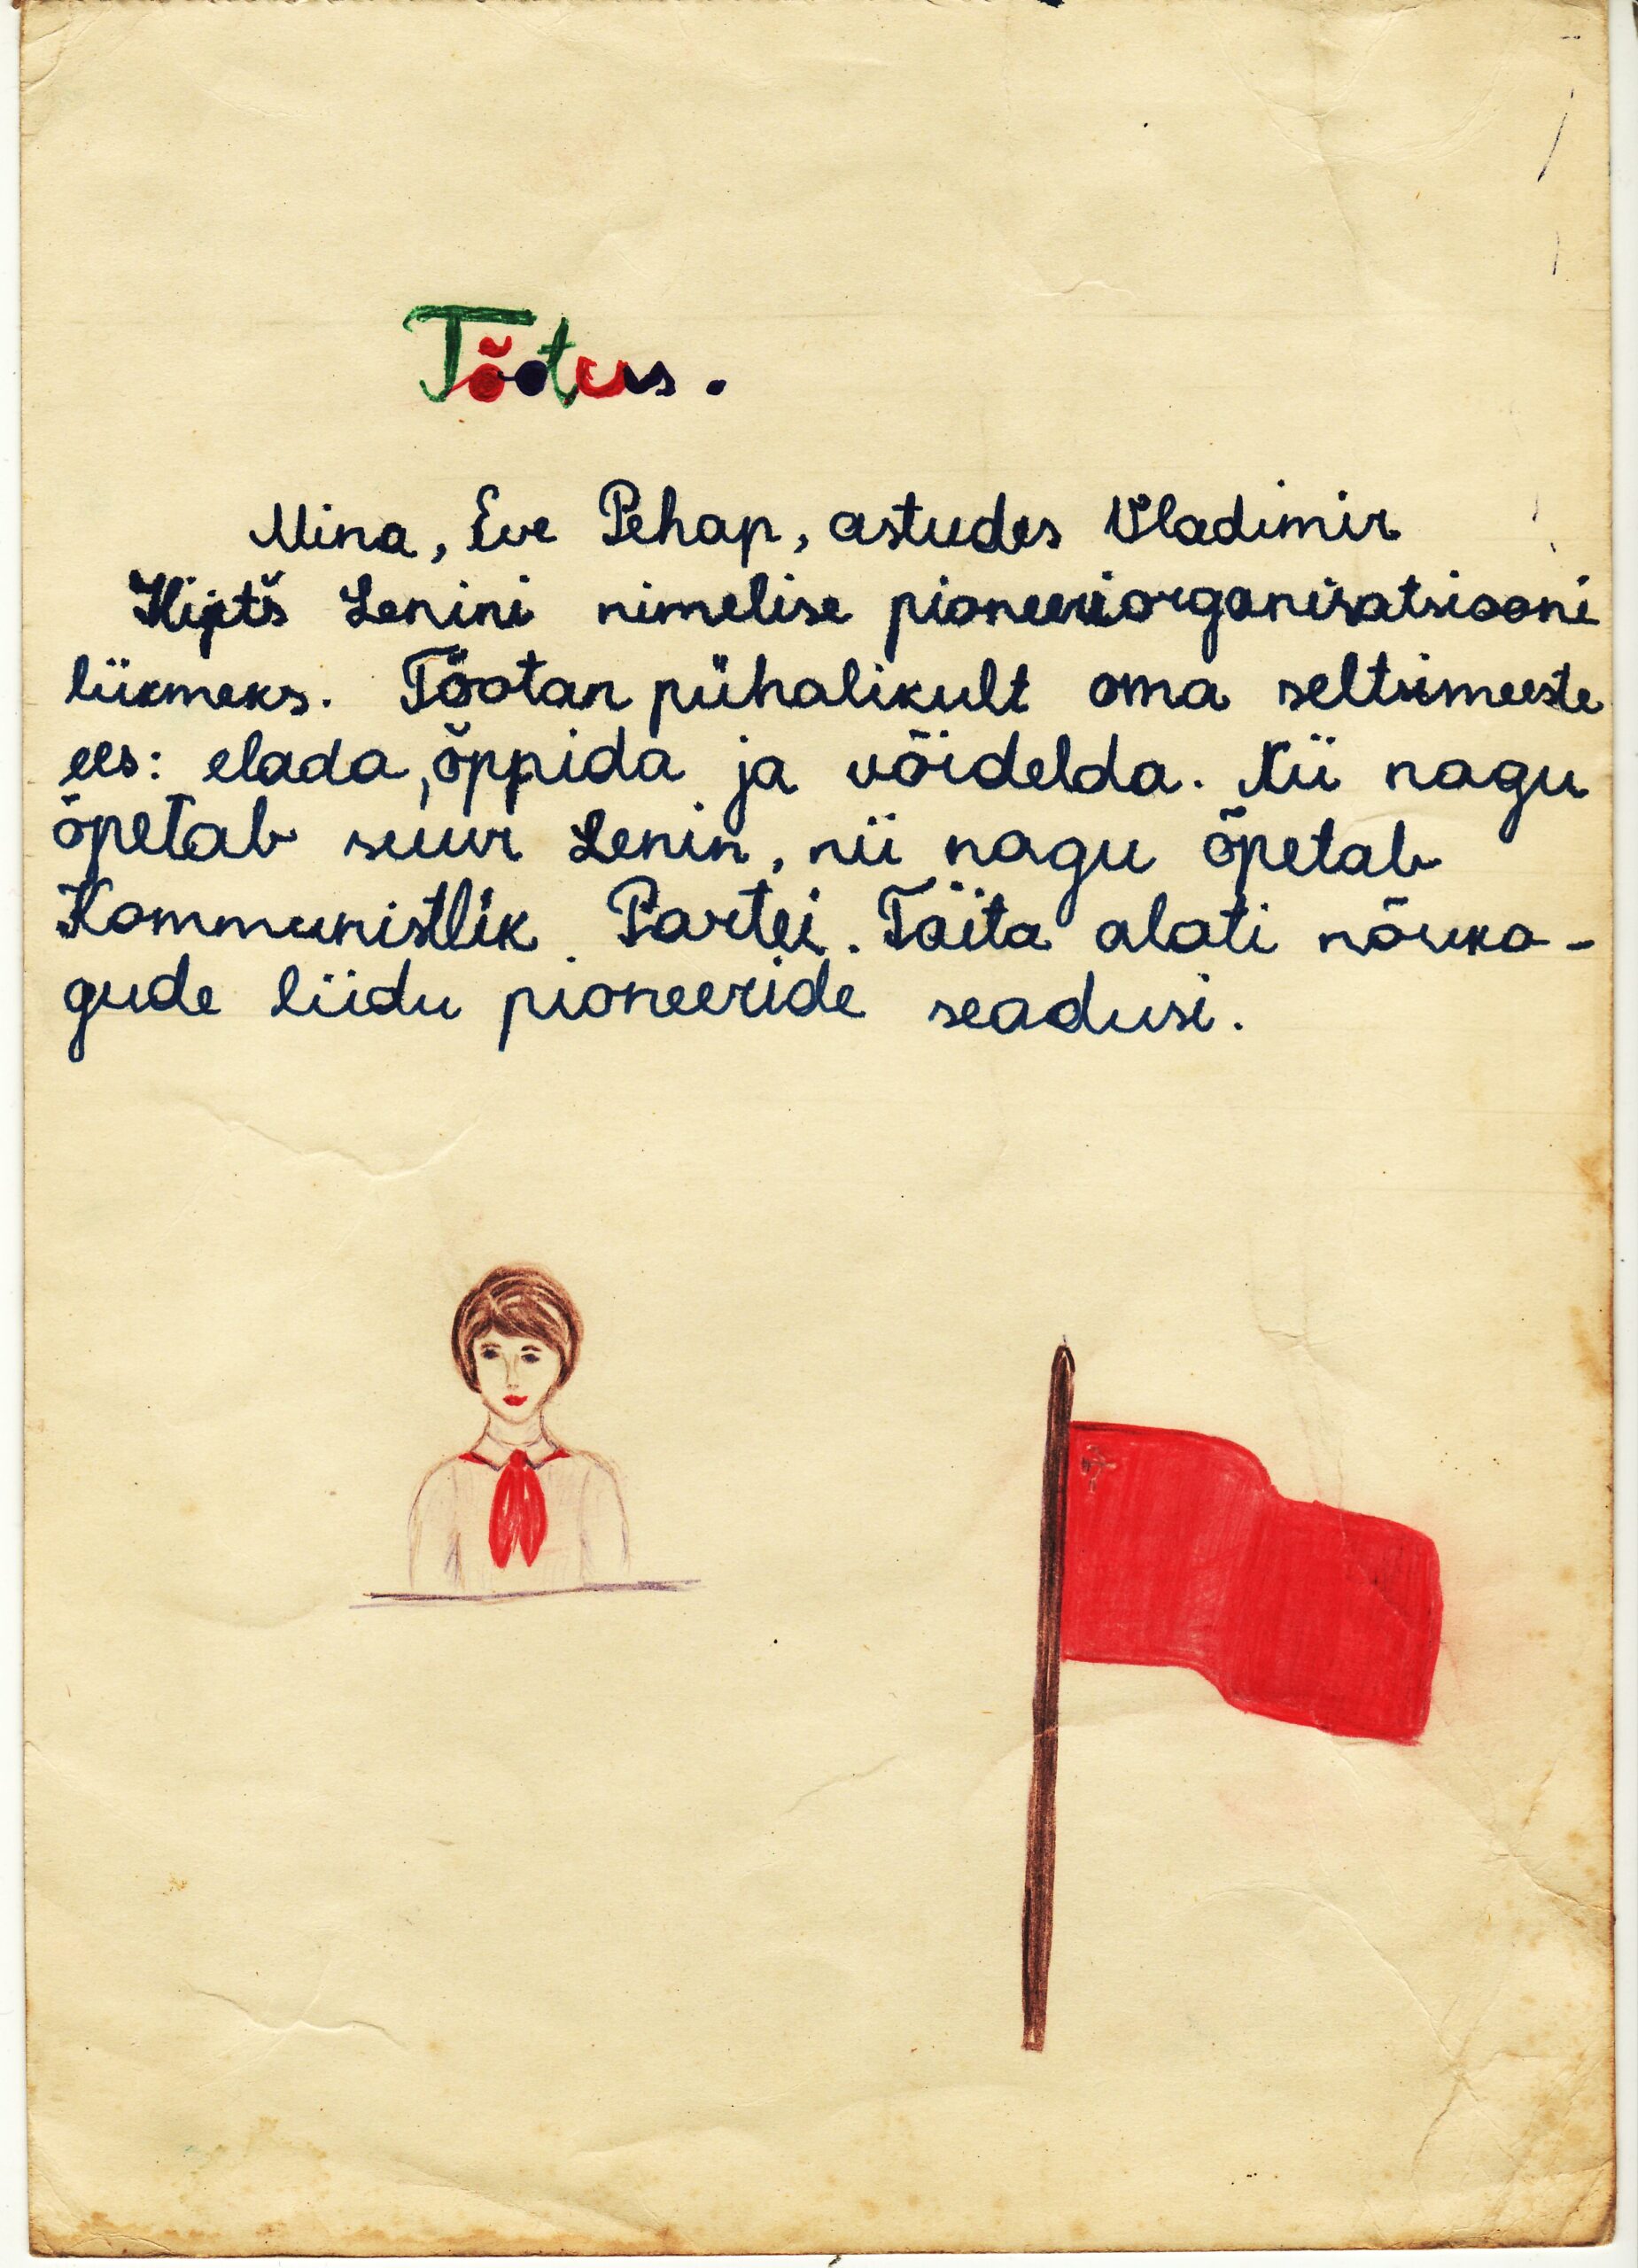 Tõotus.
Mina, Eve Pehap, astudes Vladimir
Lenini nimelise pioneeriorganisatsiooni
liikmeks. Tõotan pühalikult oma seltsimeeste
ees: elada, õppida ja võidelda. Nii nagu
õpetab suur Lenin, nii nagu õpetab
Kommunistlik Partei. Täita alati nõuko-
gude liidu pioneeride seadusi.